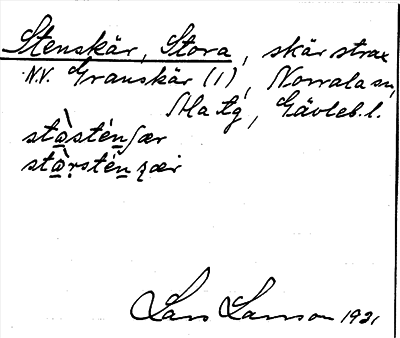 Stenskär, Stora, skär strax
N.V. Granskär (1), Norrala sn,
Ala tg, Gävleb. l.
stàsténʃær
stàrsténʒær
Lars Larsson 1931